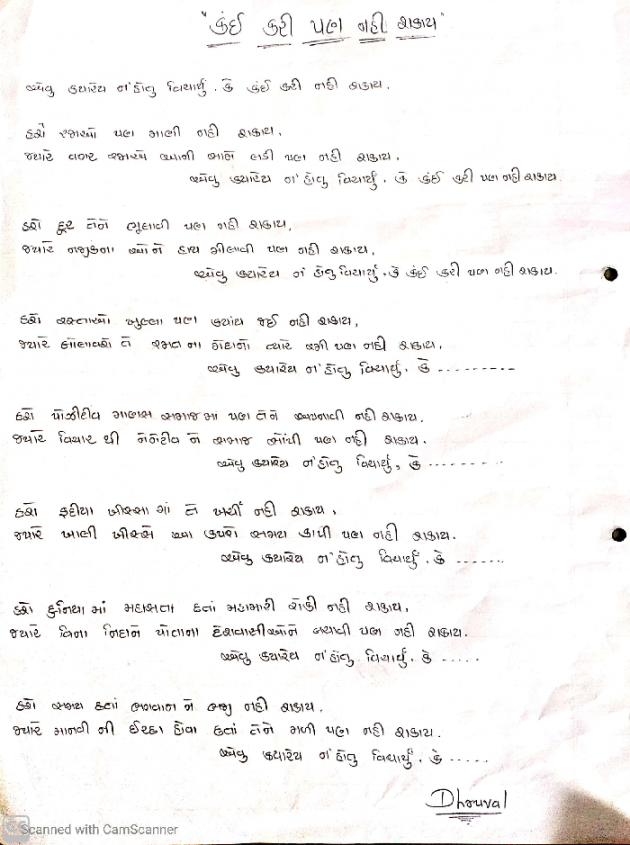 "કંઈ કરી પણ નહી શકાય"
એવુ ક્યારેય ન'હોતુ વિચાર્યુ. કે કંઈ કરી નહી શકાય.
હશે રજાઓ પણ માણી નહી શકાય,
જ્યારે વગર રજાએ આની સાને લડી પણ નહી શકાય.
એવુ ક્યારેય ન'હોતુ વિચાર્યુ. કે કંઈ કરી પણ નહી શકાય.
હશે દૂર તેને ભૂલાવી પણ નહી શકાય,
જ્યારે નજીકના ઓને હાથ મીલાવી પણ નહી શકાય,
એવુ ક્યારેય ન'હોતુ વિચાર્યુ. કે કંઈ કરી પણ નહી શકાય.
હશે રસ્તાઓ ખુલ્લા પણ ક્યાંય જઈ નહી શકાય,
જ્યારે બોલાવશે તે રમતના મેદાનો ત્યારે રમી પણ નહી શકાય.
એવુ ક્યારેય ન'હોતુ વિચાર્યુ. કે ---------
હશે પોઝીટીવ માણસ સમાજ મા પણ તેને અપનાવી નહી શકાય.
જ્યારે વિચાર થી નેગેટીવ ને સમાજ સોંપી પણ નહી શકાય.
એવુ ક્યારેય ન'હોતુ વિચાર્યુ, કે ---------
હશે રૂપીયા ખીસ્સા માં તે ખર્ચી નહી શકાય,
જ્યારે ખાલી ખીસ્સે આ કપરો સમય કાપી પણ નહી શકાય.
એવુ ક્યારેય ન'હોતુ વિચાર્યુ. કે ......
હશે દુનિયા માં મહાસતા છતાં મહામારી રોકી નહી શકાય,
જ્યારે વિના નિદાને પોતાના દેશવાસીઓને બચાવી પણ નહી શકાય.
એવુ ક્યારેય ન'હોતુ વિચાર્યુ. કે .....
હશે સમય છતાં ભગવાન ને ભજી નહી શકાય.
જ્યારે માનવી ની ઈચ્છા હોવા છતાં તેને મળી પણ નહી શકાય.
એવુ ક્યારેય ન'હોતુ વિચાર્યુ. કે .....
Dhruval
Scanned with CamScanner